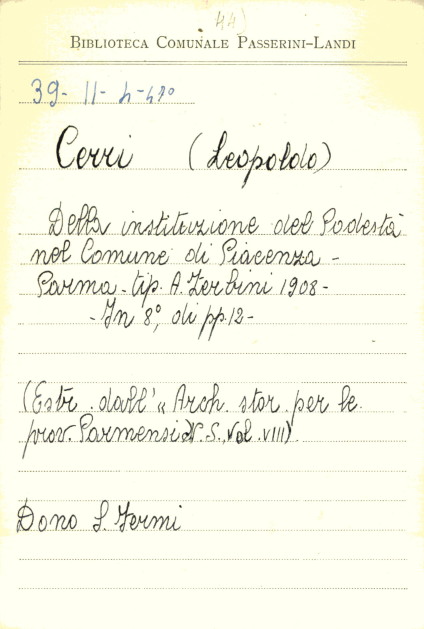 44)
BIBLIOTECA COMUNALE PASSERINI-LANDI
39- 11- 4-41º
Cerri (Leopoldo)
Della instituzione del Podestà
nel Comune di Piacenza -
Parma - tip. A. Zerbini 1908 -
- In 8º, di pp. 12 -
(Estr. dall' " Arch. stor. per le
prov. Parmensi N. S. Vol. VIII)
Dono S. Fermi